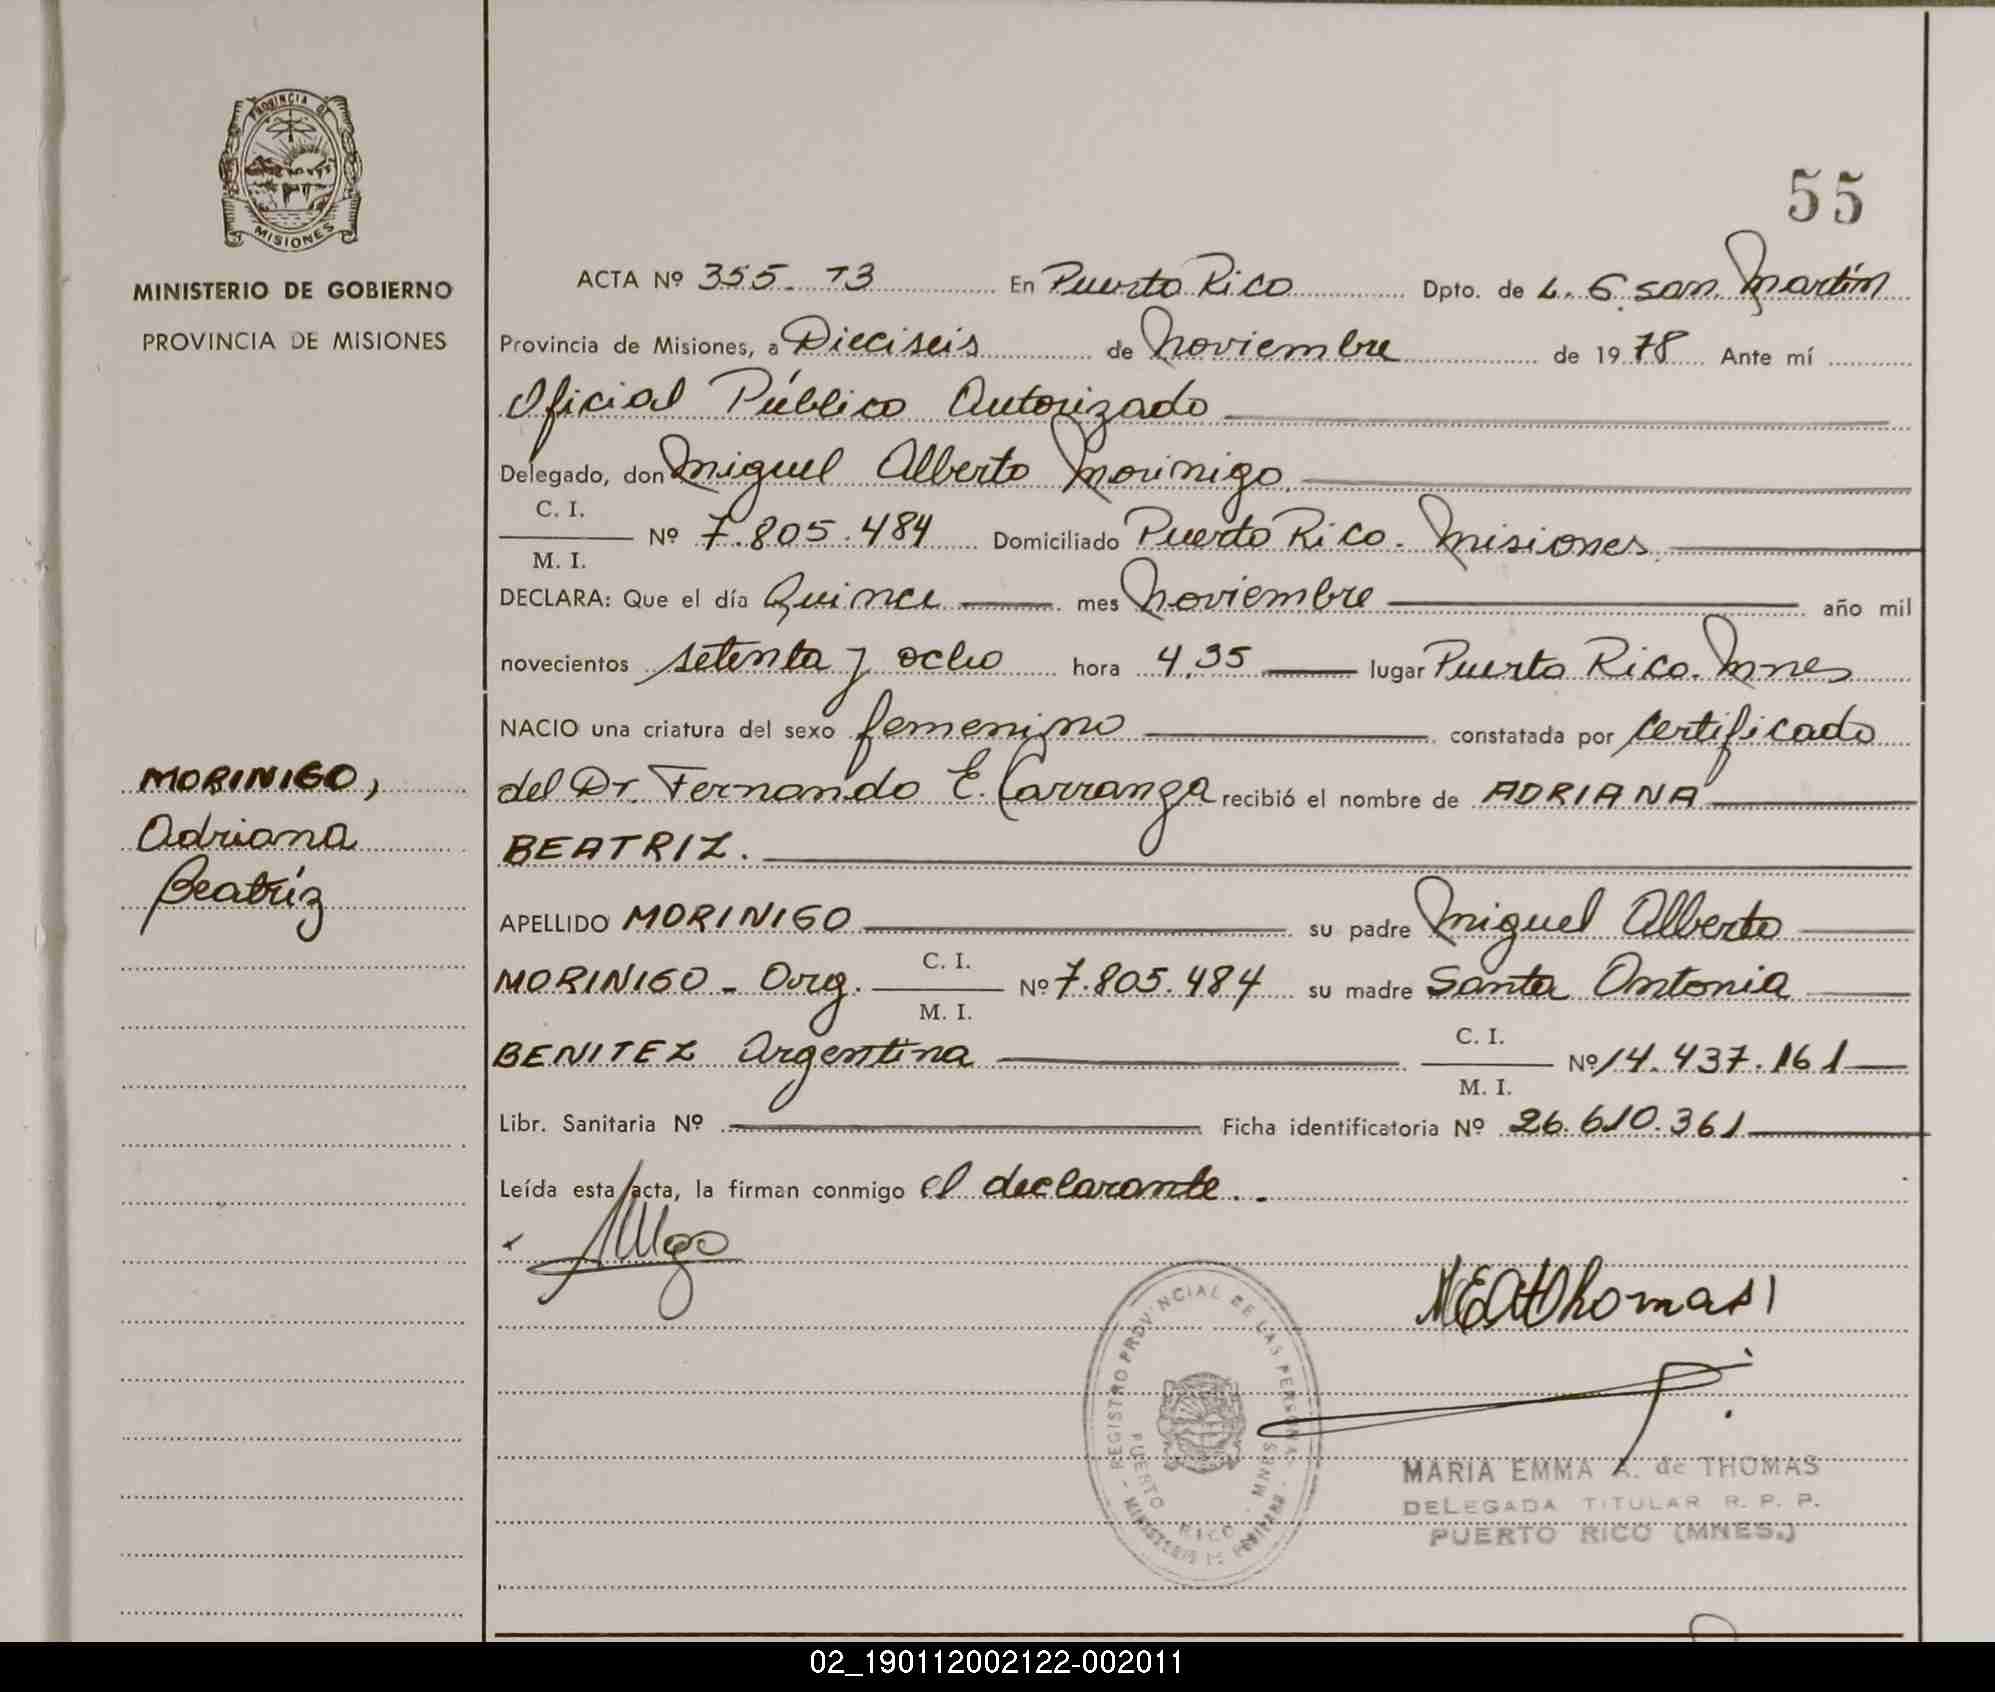 PROVINCIA DE
MISIONES
MINISTERIO DE GOBIERNO
PROVINCIA DE MISIONES
MORINIGO,
Adriana
Beatriz
55
ACTA Nº 355. T3 En Puerto Rico Dpto. de L. G. San Martín
Provincia de Misiones, a Dieciseis de Noviembre de 1978 Ante mí
Oficial Público Autorizado
Delegado, don Miguel Alberto Morinigo
C. I.
M. I. Nº 7.805.484 Domiciliado Puerto Rico. Misiones
DECLARA: Que el día Quince mes Noviembre año mil
novecientos setenta y ocho hora 4,35 lugar Puerto Rico. Mnes
NACIO una criatura del sexo femenino constatada por certificado
del Dr. Fernando E. Carranza recibió el nombre de ADRIANA
BEATRIZ.
APELLIDO MORINIGO su padre Miguel Alberto
MORINIGO - Arg. C. I. M. I. Nº 7.805.484 su madre Santa Antonia
BENITEZ Argentina C. I. M. I. Nº 14.437.161
Libr. Sanitaria Nº Ficha identificatoria Nº 26.610.361
Leída esta acta, la firman conmigo el declarante.
REGISTRO PROVINCIAL DE LAS PERSONAS
PUERTO RICO - MNES
MARIA EMMA A. de THOMAS
DELEGADA TITULAR R. P. P.
PUERTO RICO (MNES.)
02_190112002122-002011